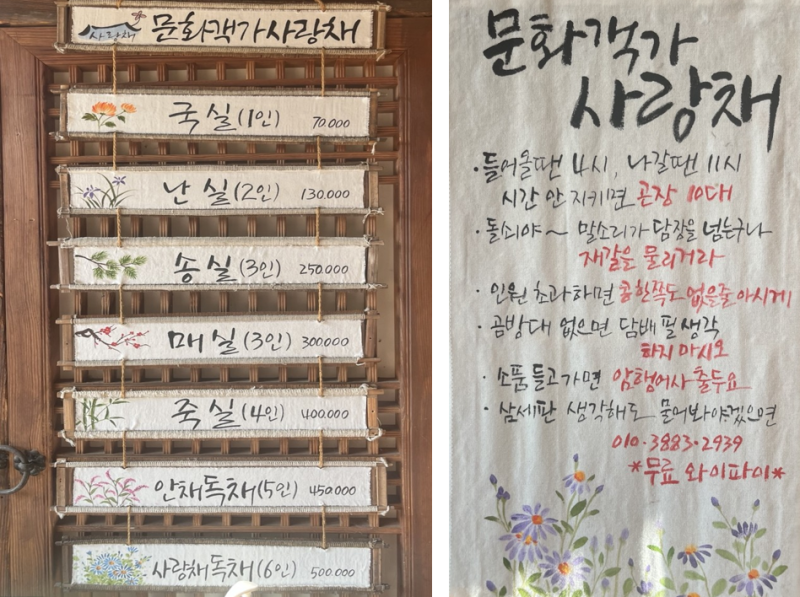 사랑채
문화객가사랑채
국실(1인) 70.000
난실(2인) 130.000
송실(3인) 250.000
매실(3인) 300.000
죽실(4인) 400.000
안채독채(5인) 450.000
사랑채독채(6인) 500.000
문화객가
사랑채
·들어올땐 4시, 나갈땐 11시
시간 안 지키면 곤장 10대
·돌쇠야~ 말소리가 담장을 넘는구나
재갈을 물리거라
·인원 초과하면 콩 한쪽도 없을줄 아시게
·곰방대 없으면 담배 필 생각
하지 마시오
·소품 들고가면 암행어사 출두요
·삼세판 생각해도 물어봐야겠으면
010·3883·2939
*무료 와이파이*